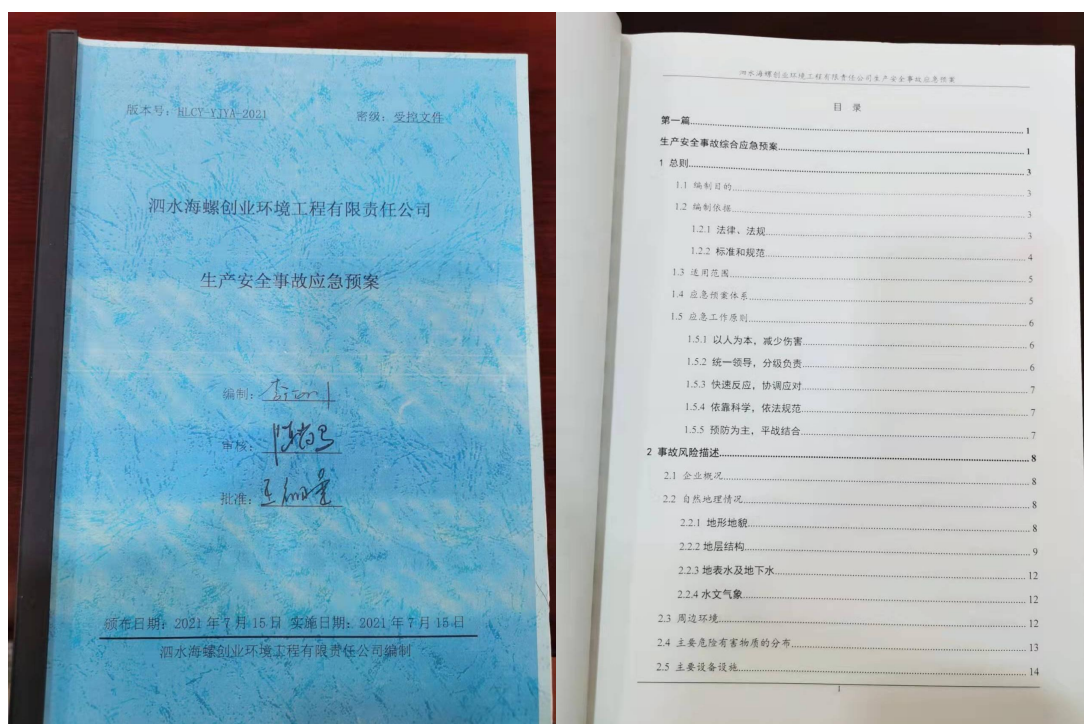 版本号：HLCY-YJYA-2021 密级：受控文件
泗水海螺创业环境工程有限责任公司
生产安全事故应急预案
编制：
审核：
批准：
颁布日期：2021年7月15日 实施日期：2021年7月15日
泗水海螺创业环境工程有限责任公司编制
泗水海螺创业环境工程有限责任公司生产安全事故应急预案
目 录
第一篇 1
生产安全事故综合应急预案 1
1 总则 3
1.1 编制目的 3
1.2 编制依据 3
1.2.1 法律、法规 3
1.2.2 标准和规范 4
1.3 适用范围 5
1.4 应急预案体系 5
1.5 应急工作原则 6
1.5.1 以人为本，减少伤害 6
1.5.2 统一领导，分级负责 6
1.5.3 快速反应，协调应对 7
1.5.4 依靠科学，依法规范 7
1.5.5 预防为主，平战结合 7
2 事故风险描述 8
2.1 企业概况 8
2.2 自然地理情况 8
2.2.1 地形地貌 8
2.2.2 地层结构 9
2.2.3 地表水及地下水 12
2.2.4 水文气象 12
2.3 周边环境 12
2.4 主要危险有害物质的分布 13
2.5 主要设备设施 14
1